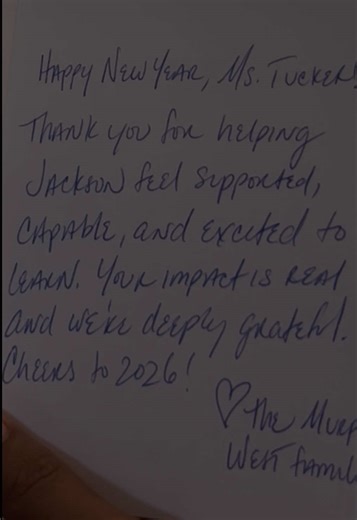 Happy New Year, Ms. Tucker!
Thank you for helping
Jackson feel supported,
capable, and excited to
learn. Your impact is real
and we're deeply grateful.
Cheers to 2026!
♡ the
West